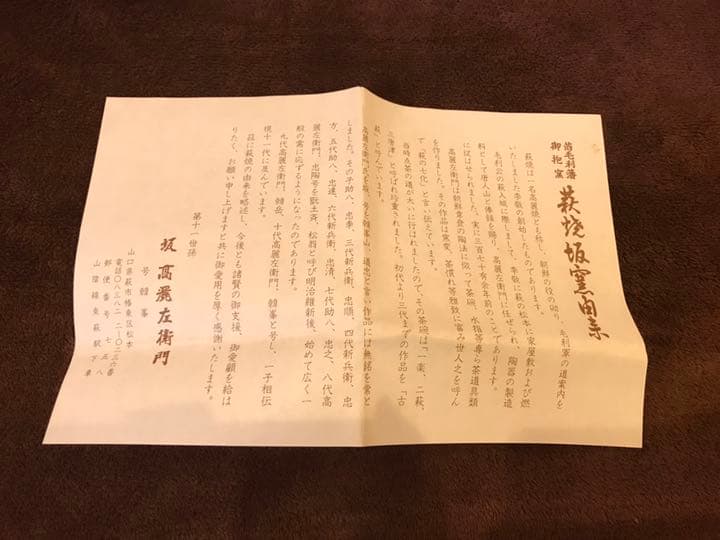 旧毛利藩
御抱窯
萩焼坂窯由来
萩焼は一名高麗焼とも称し、朝鮮の役の砌り、毛利軍の道案内を
いたしました李敬の創始したものであります。
毛利公の萩入城に際しまして、李敬に萩の松本に家屋敷および燃
料として唐人山と俸禄を賜り、高麗左衛門に任せられ、陶器の製造
に従はせられました。実に三百七十有余年前のことであります。
高麗左衛門は朝鮮章登の陶法に倣って茶碗、水指等専ら茶道具類
を作りました。その作品は窯変、茶慣れ等雅致に富み世人之を呼ん
で「萩の七化」と言い伝えています。
当時点茶の道が大いに行はれましたので、その茶碗は「一楽、二萩、
三唐津」と呼ばれ珍重されました。初代より三代までの作品を「古
萩」と呼んでいます。
高麗左衛門氏を坂、号を韓峯山、道忠と言い作品には無銘を常と
しました。その子助八、忠季、三代新兵衛、忠順、四代新兵衛、忠
方、五代助八、忠達、六代新兵衛、忠清、七代助八、忠之、八代高
麗左衛門、忠陶号を翫土斉、松翁と呼び明治維新後、始めて広く一
般の需に応ずるようになったのであります。
九代高麗左衛門、韓岳、十代高麗左衛門、韓峯と号し、一子相伝
現十一代に及んでいます。
萩に萩焼の由来を略述し、今後とも諸賢の御支援、御愛顧を給は
りたく、お願い申し上げますと共に御愛用を厚く感謝いたします。
第十一世孫
坂高麗左衛門
号韓峯
山口県萩市椿東区松本
電話〇八三八二 二-〇二三六番
郵便番号七五八
山陰線東萩駅下車